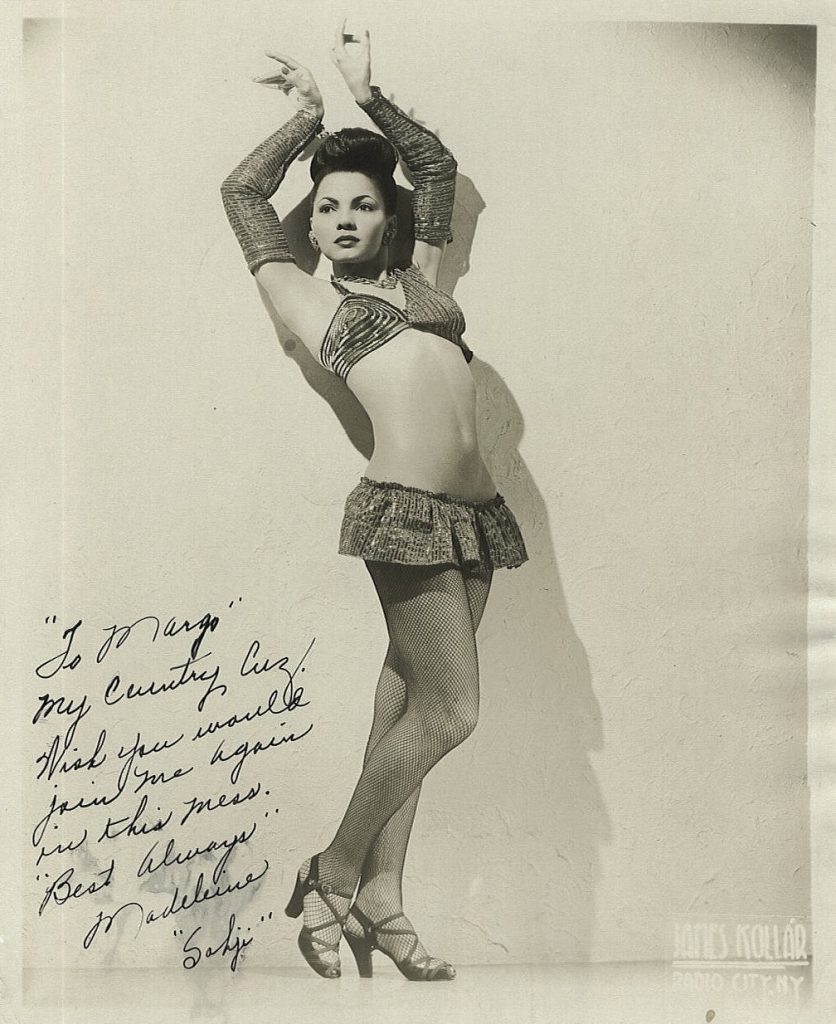 "To Margo"
My Country Cuz!
Wish you would
join me again
in this mess.
"Best Always"
Madeleine
"Sahji"
JAMES KOLLÁR
RADIO CITY, NY